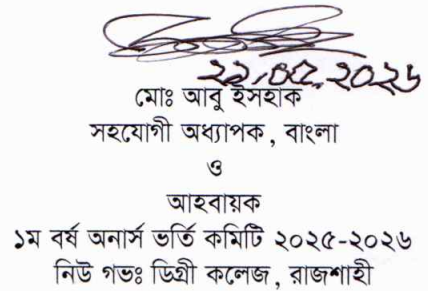 ২১.০৫.২০২৬
মোঃ আবু ইসহাক
সহযোগী অধ্যাপক, বাংলা
ও
আহবায়ক
১ম বর্ষ অনার্স ভর্তি কমিটি ২০২৫-২০২৬
নিউ গভঃ ডিগ্রী কলেজ, রাজশাহী